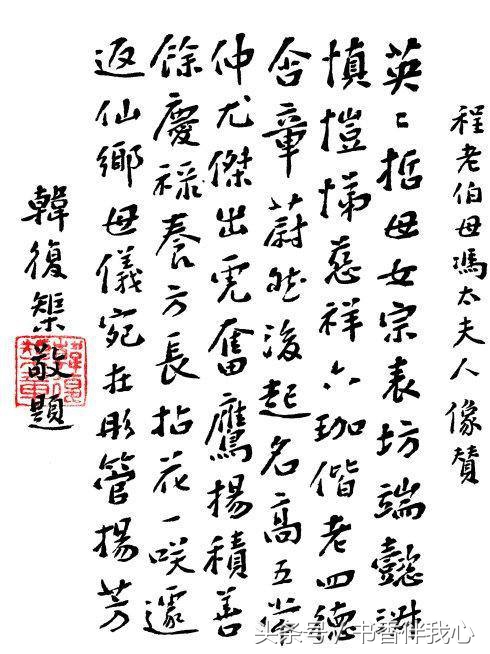 程老伯母馮太夫人像贊
英〻哲母女宗表坊端懿淑
慎愷悌慈祥六珈偕老四德
含章蔚然後起名高五常
仲尤傑出虎奮鷹揚積善
餘慶祿養方長拈花一咲遽
返仙鄉母儀宛在彤管揚芳
韓復榘敬題
头条号／书香伴我心